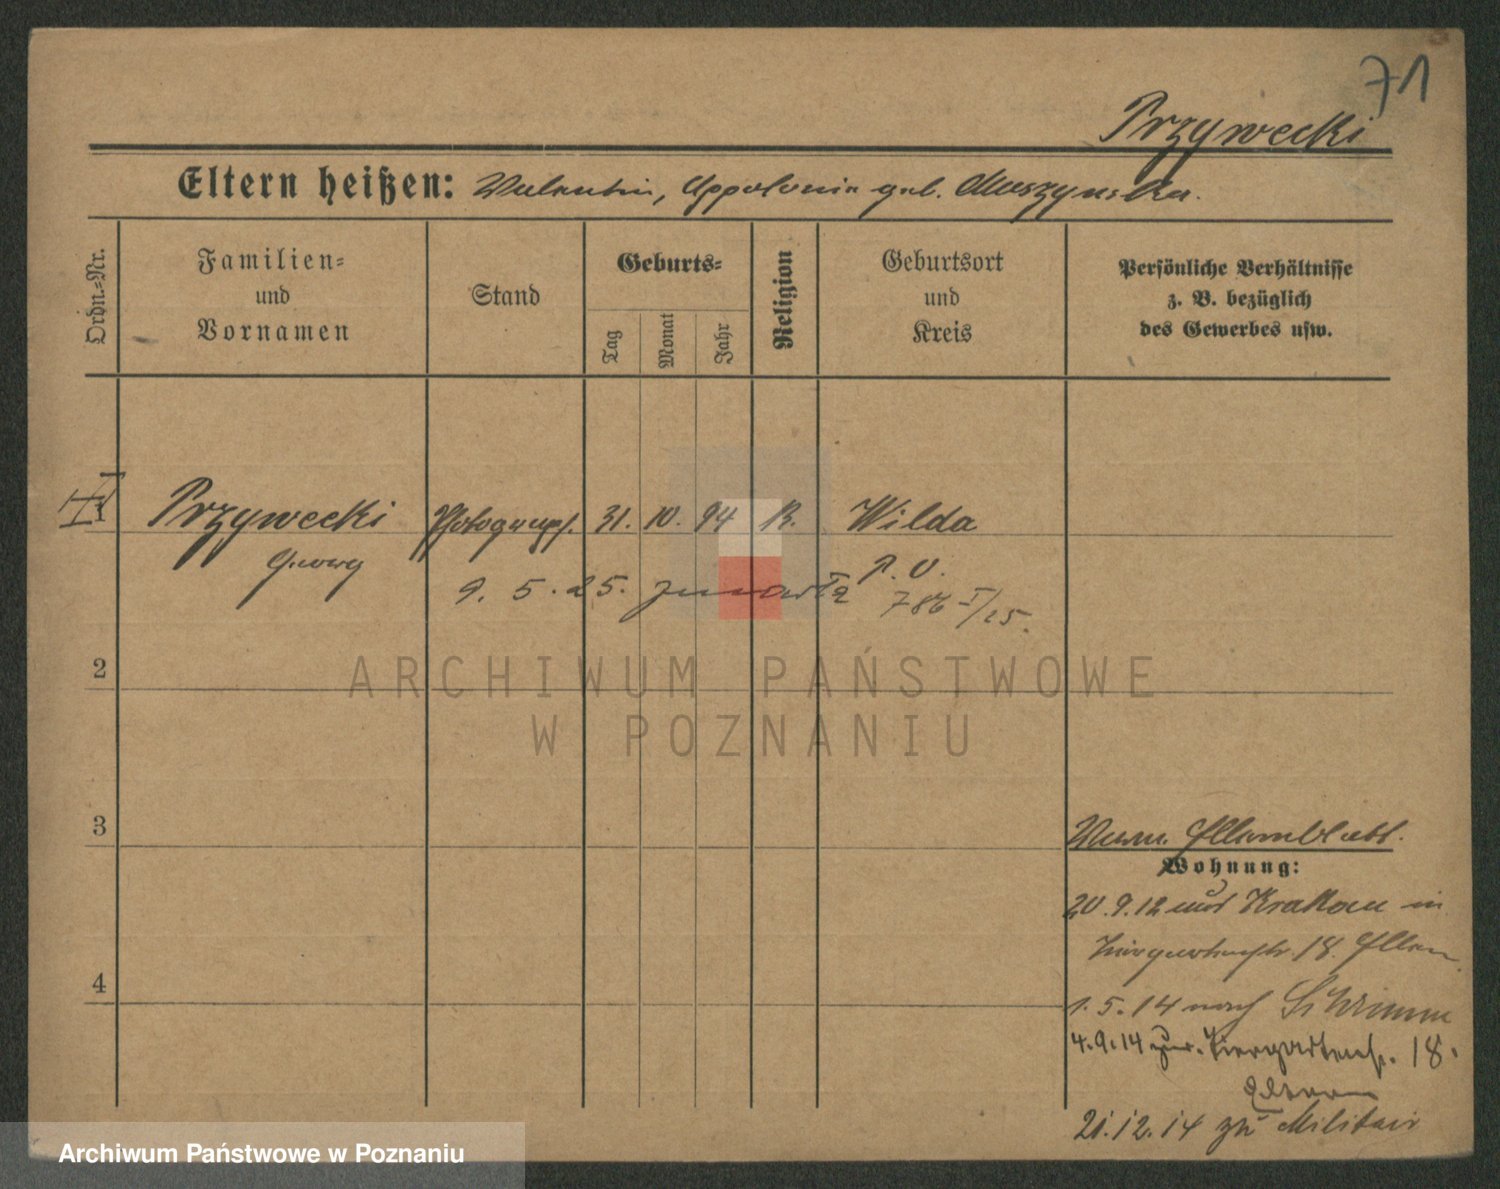 71
Przywecki
Eltern heißen: Valentin, Appolonia geb. Muszynska.
Ordn.-Nr.
Familien-
und
Vornamen
Stand
Geburts-
Tag
Monat
Jahr
Religion
Geburtsort
und
Kreis
Persönliche Verhältnisse
z. B. bezüglich
des Gewerbes usw.
1 Przywecki Photograph. 31. 10. 94 K. Wilda
Georg P. O.
9. 5. 25. zmarła 786 I/25.
2
3
Wohnung:
20.9.12 aus Krakau in
Tiergartenstr. 18. Eltern
4
1.5.14 nach Schrimm
4.9.14 zur. Tiergartenstr. 18.
Eltern
21.12.14 zu Militair
ARCHIWUM PAŃSTWOWE
W POZNANIU
Archiwum Państwowe w Poznaniu